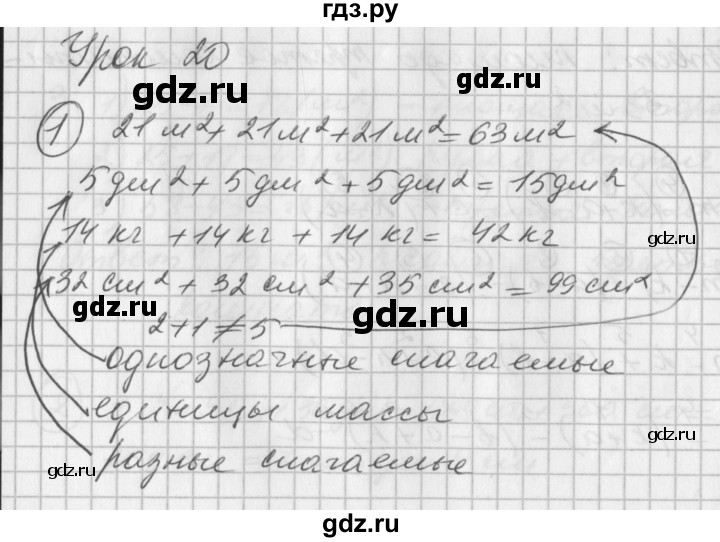 гдз.ру
Урок 20
gdz.ru
gdz.ru
1 21 м² + 21 м² + 21 м² = 63 м²
5 дм² + 5 дм² + 5 дм² = 15 дм²
14 кг + 14 кг + 14 кг = 42 кг
gdz.ru
32 см² + 32 см² + 35 см² = 99 см²
gdz.ru
gdz.ru
2+1≠5
однозначные слагаемые
единицы массы
gdz.ru
разные слагаемые
gdz.ru
gdz.ru